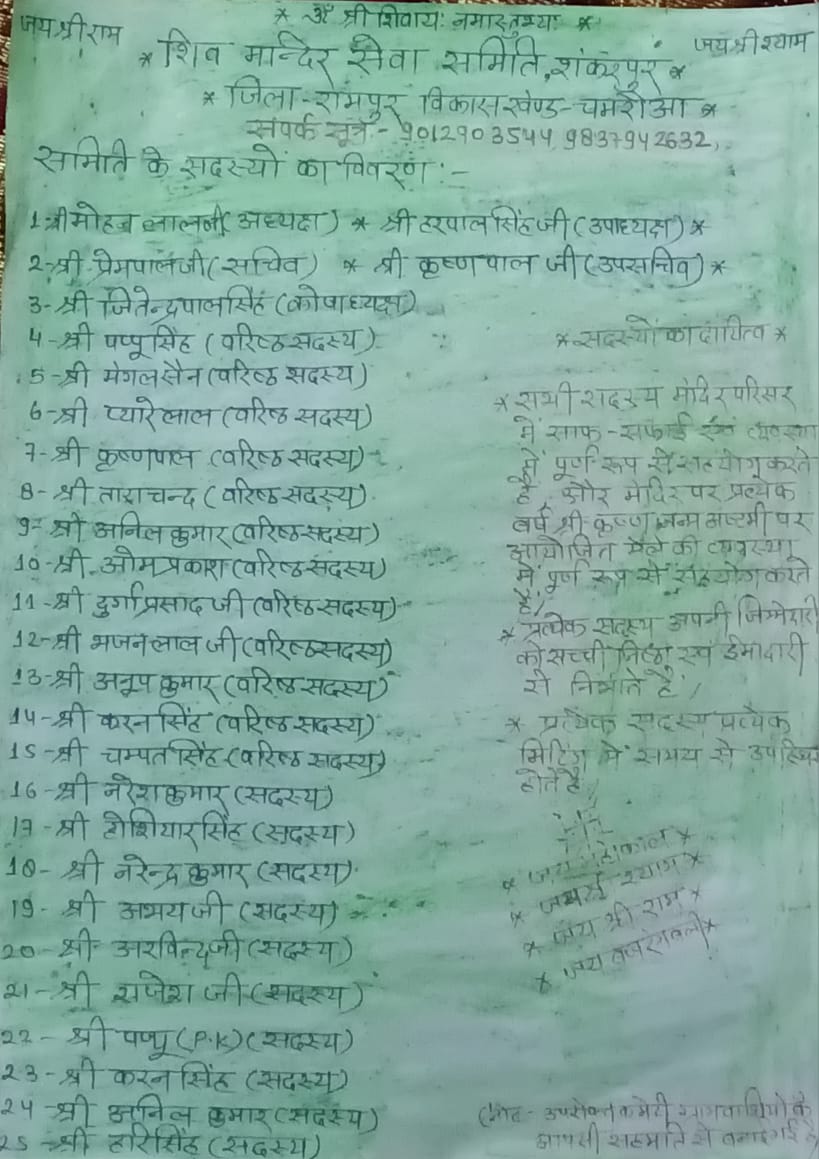 * ॐ श्री शिवायः नमास्तुभ्यः *
जय श्री राम
जय श्री श्याम
* शिव मन्दिर सेवा समिति, शंकरपुर *
* जिला-रामपुर विकास खण्ड-चमरौआ *
संपर्क सूत्र - 9012903544, 9837942632,
समिति के सदस्यों का विवरण :-
1-श्री मोहन लाल जी (अध्यक्ष) * श्री हरपाल सिंह जी (उपाध्यक्ष) *
2-श्री प्रेमपाल जी (सचिव) * श्री कृष्णपाल जी (उपसचिव) *
3-श्री जितेन्द्रपाल सिंह (कोषाध्यक्ष)
4-श्री पप्पू सिंह (वरिष्ठ सदस्य)
5-श्री मंगलसैन (वरिष्ठ सदस्य)
6-श्री प्यारेलाल (वरिष्ठ सदस्य)
7-श्री कृष्णपाल (वरिष्ठ सदस्य)
8-श्री ताराचन्द (वरिष्ठ सदस्य)
9-श्री अनिल कुमार (वरिष्ठ सदस्य)
10-श्री ओमप्रकाश (वरिष्ठ सदस्य)
11-श्री दुर्गाप्रसाद जी (वरिष्ठ सदस्य)
12-श्री भजनलाल जी (वरिष्ठ सदस्य)
13-श्री अनूप कुमार (वरिष्ठ सदस्य)
14-श्री करन सिंह (वरिष्ठ सदस्य)
15-श्री चम्पत सिंह (वरिष्ठ सदस्य)
16-श्री नरेश कुमार (सदस्य)
17-श्री होशियार सिंह (सदस्य)
18-श्री नरेन्द्र कुमार (सदस्य)
19-श्री अभय जी (सदस्य)
20-श्री अरविन्द जी (सदस्य)
21-श्री राजेश जी (सदस्य)
22-श्री पप्पू (P.K) (सदस्य)
23-श्री करन सिंह (सदस्य)
24-श्री अनिल कुमार (सदस्य)
25-श्री हरिसिंह (सदस्य)
* सदस्यों का दायित्व *
* सभी सदस्य मंदिर परिसर
में साफ-सफाई एवं व्यवस्था
में पूर्ण रूप से सहयोग करते
हैं, और मंदिर पर प्रत्येक
वर्ष श्री कृष्ण जन्माष्टमी पर
आयोजित मेले की व्यवस्था
में पूर्ण रूप से सहयोग करते
हैं,
* प्रत्येक सदस्य अपनी जिम्मेदारी
को सच्ची निष्ठा एवं ईमादारी
से निभाते हैं,
* प्रत्येक सदस्य प्रत्येक
मिटिंग में समय से उपस्थित
होते हैं,
* जय महाकाल *
* जय श्री श्याम *
* जय श्री राम *
* जय बजरंगबली *
(नोट - उपरोक्त कमेटी ग्रामवासियों के
आपसी सहमति से बनाई गई है